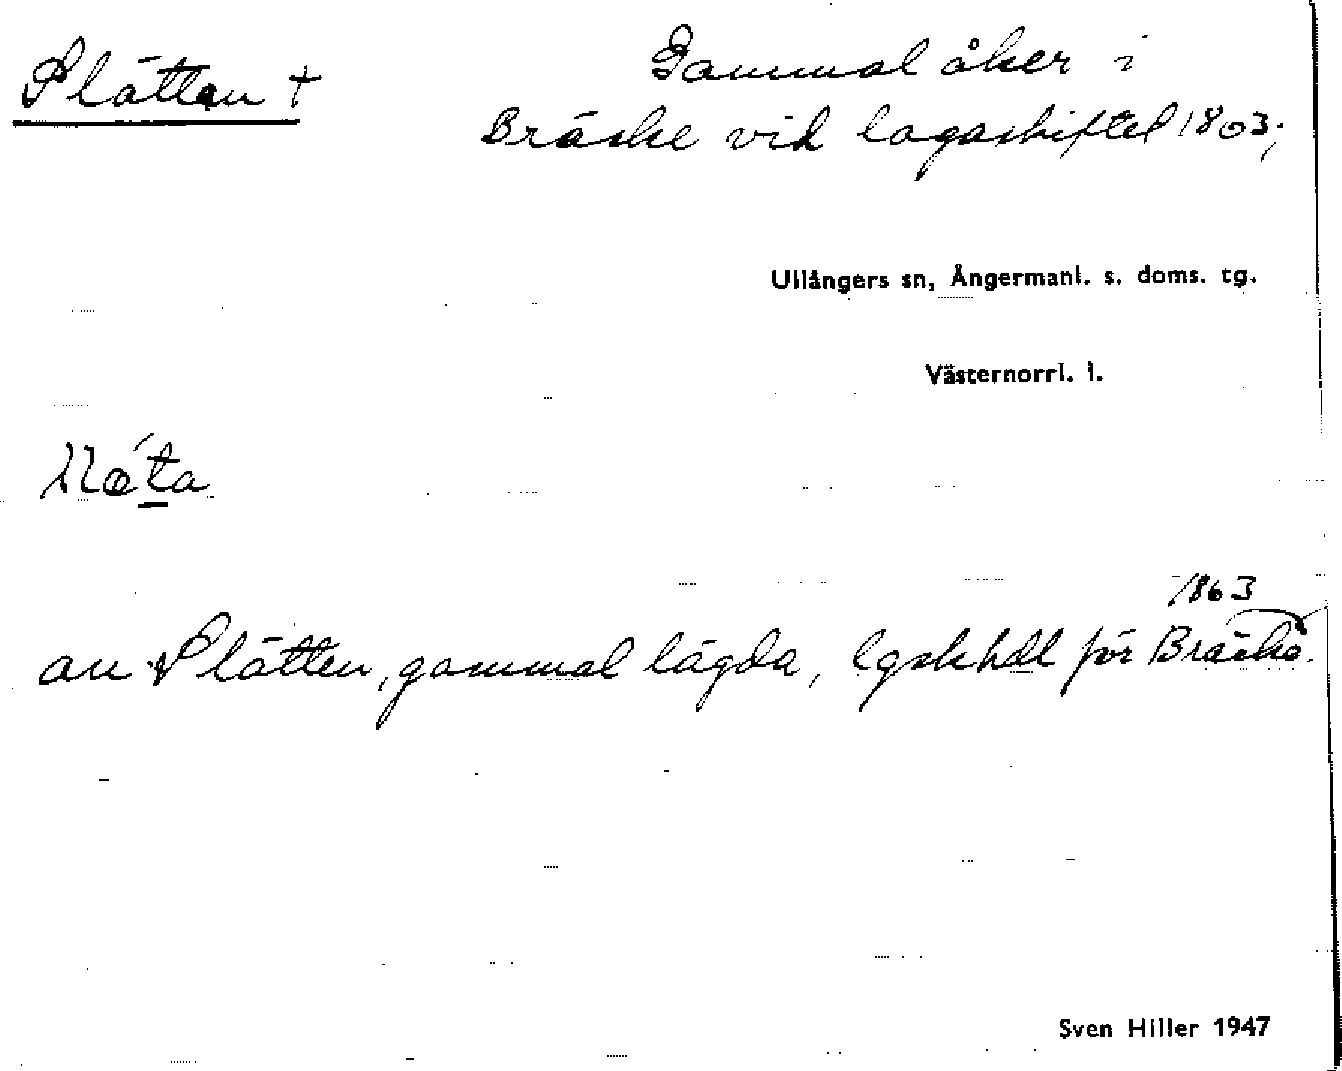 Slätten +
Gammal åker i
Bräcke vid lagaskiftet 1803;
Ullångers sn, Ångermanl. s. doms. tg.
Västernorrl. l.
1863
an Slätten, gammal lägda, lgskhdl för Bräcke.
Sven Hiller 1947